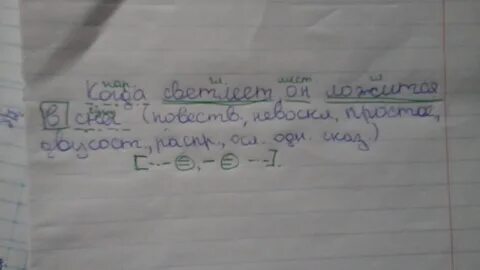 нар. гл. мест. гл.
Когда светлеет он ложится
в (повеств, невоскл, простое,
двусост, распр., осл. одн. сказ)
[--- =, - = ---].